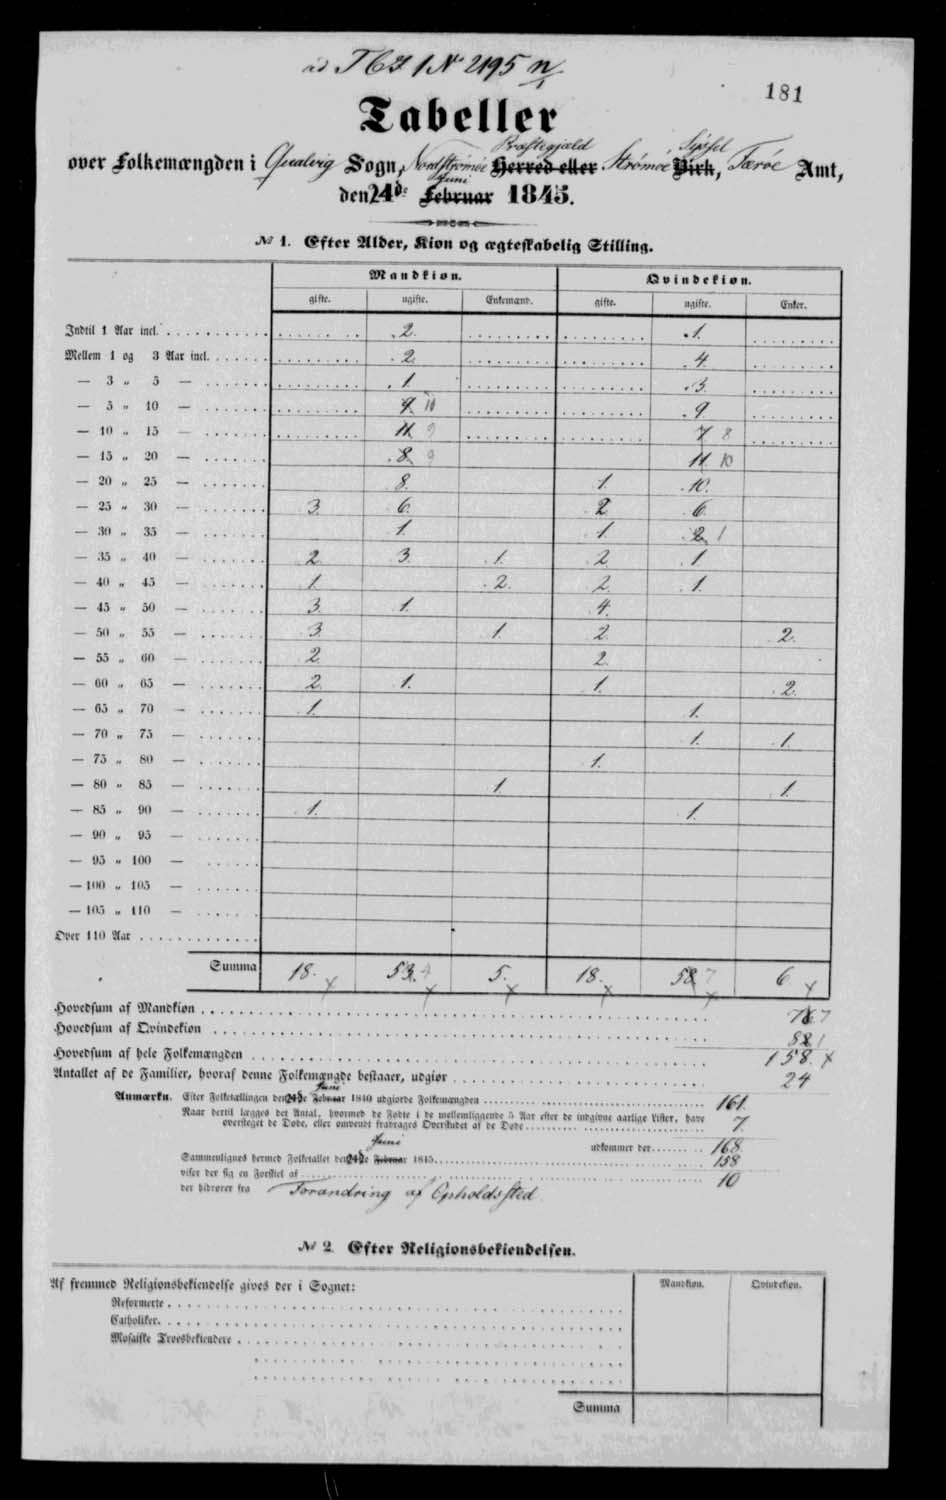 ad T C Z 1 No 2195 n/1
181
Tabeller
Præstegjæld Syssel
over Folkemængden i Qualvig Sogn, Nordstrømøe Herred eller Strømøe Birk, Færøe Amt,
Juni
den 24de Februar 1845.
№ 1. Efter Alder, Kiøn og ægteskabelig Stilling.
Mandkiøn. Qvindekiøn.
gifte. ugifte. Enkemænd. gifte. ugifte. Enker.
Indtil 1 Aar incl. 2. 1.
Mellem 1 og 3 Aar incl. 2. 4.
— 3 „ 5 — 1. 3.
— 5 „ 10 — 9 10 9.
— 10 „ 15 — 11 9 7 8
— 15 „ 20 — 8 9 11 10
— 20 „ 25 — 8. 1. 10.
— 25 „ 30 — 3. 6. 2 6.
— 30 „ 35 — 1. 1. 2 1
— 35 „ 40 — 2. 3. 1. 2. 1.
— 40 „ 45 — 1. 2. 2. 1.
— 45 „ 50 — 3. 1. 4.
— 50 „ 55 — 3. 1. 2. 2.
— 55 „ 60 — 2. 2.
— 60 „ 65 — 2. 1. 1. 2.
— 65 „ 70 — 1. 1.
— 70 „ 75 — 1. 1.
— 75 „ 80 — 1.
— 80 „ 85 — 1. 1.
— 85 „ 90 — 1. 1.
— 90 „ 95
— 95 „ 100 —
— 100 „ 105 —
— 105 „ 110 —
Over 110 Aar
Summa 18. 53. 4 5. 18. 58 7 6
Hovedsum af Mandkiøn 76 7
Hovedsum af Qvindekiøn 82 1
Hovedsum af hele Folkemængden 158.
Antallet af de Familier, hvoraf denne Folkemængde bestaaer, udgiør 24
Juni
Anmærkn. Efter Folketællingen den 24de Februar 1840 udgiorde Folkemængden 161.
Naar dertil lægges det Antal, hvormed de Fødte i de mellemliggende 5 Aar efter de indgivne aarlige Lister, have
oversteget de Døde, eller omvendt fradrages Overskudet af de Døde 7.
udkommer der 168.
Juni
Sammenlignes hermed Folketallet den 24de Februar 1845 158
viser der sig en Forskiel af 10
der hidrører fra Forandring af Opholdssted.
№ 2. Efter Religionsbekiendelsen.
Af fremmed Religionsbekiendelse gives der i Sognet: Mandkiøn. Qvindekiøn.
Reformerte
Catholiker.
Mosaiske Troesbekiendere
Summa